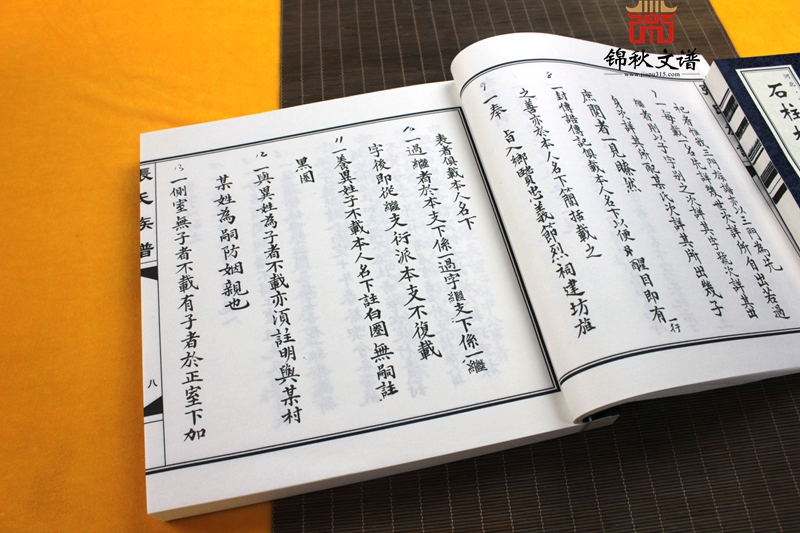 锦秋文谱
www.jiapu315.com
河北
石柱
一每載一名先詳幾世次詳所自出若過
繼者則
身次詳其所配某氏次詳其所出幾子
庶閱者一見瞭然
一封傳誥傳記俱載本人名下以便身醒目即有一行
之善亦於本人名下簡括載之
一奉旨入鄉賢忠義節烈祠建坊旌
表者俱載本人名下
一過繼者於本支下係一過字繼支下係一繼
字後即從繼支衍派本支不復載
一養異姓子不載本人名下註白圈無嗣註
黑圈
一與異姓為子者不載亦須註明與某村
某姓為嗣防姻親也
一側室無子者不載有子者於正室下加
張氏族譜
八